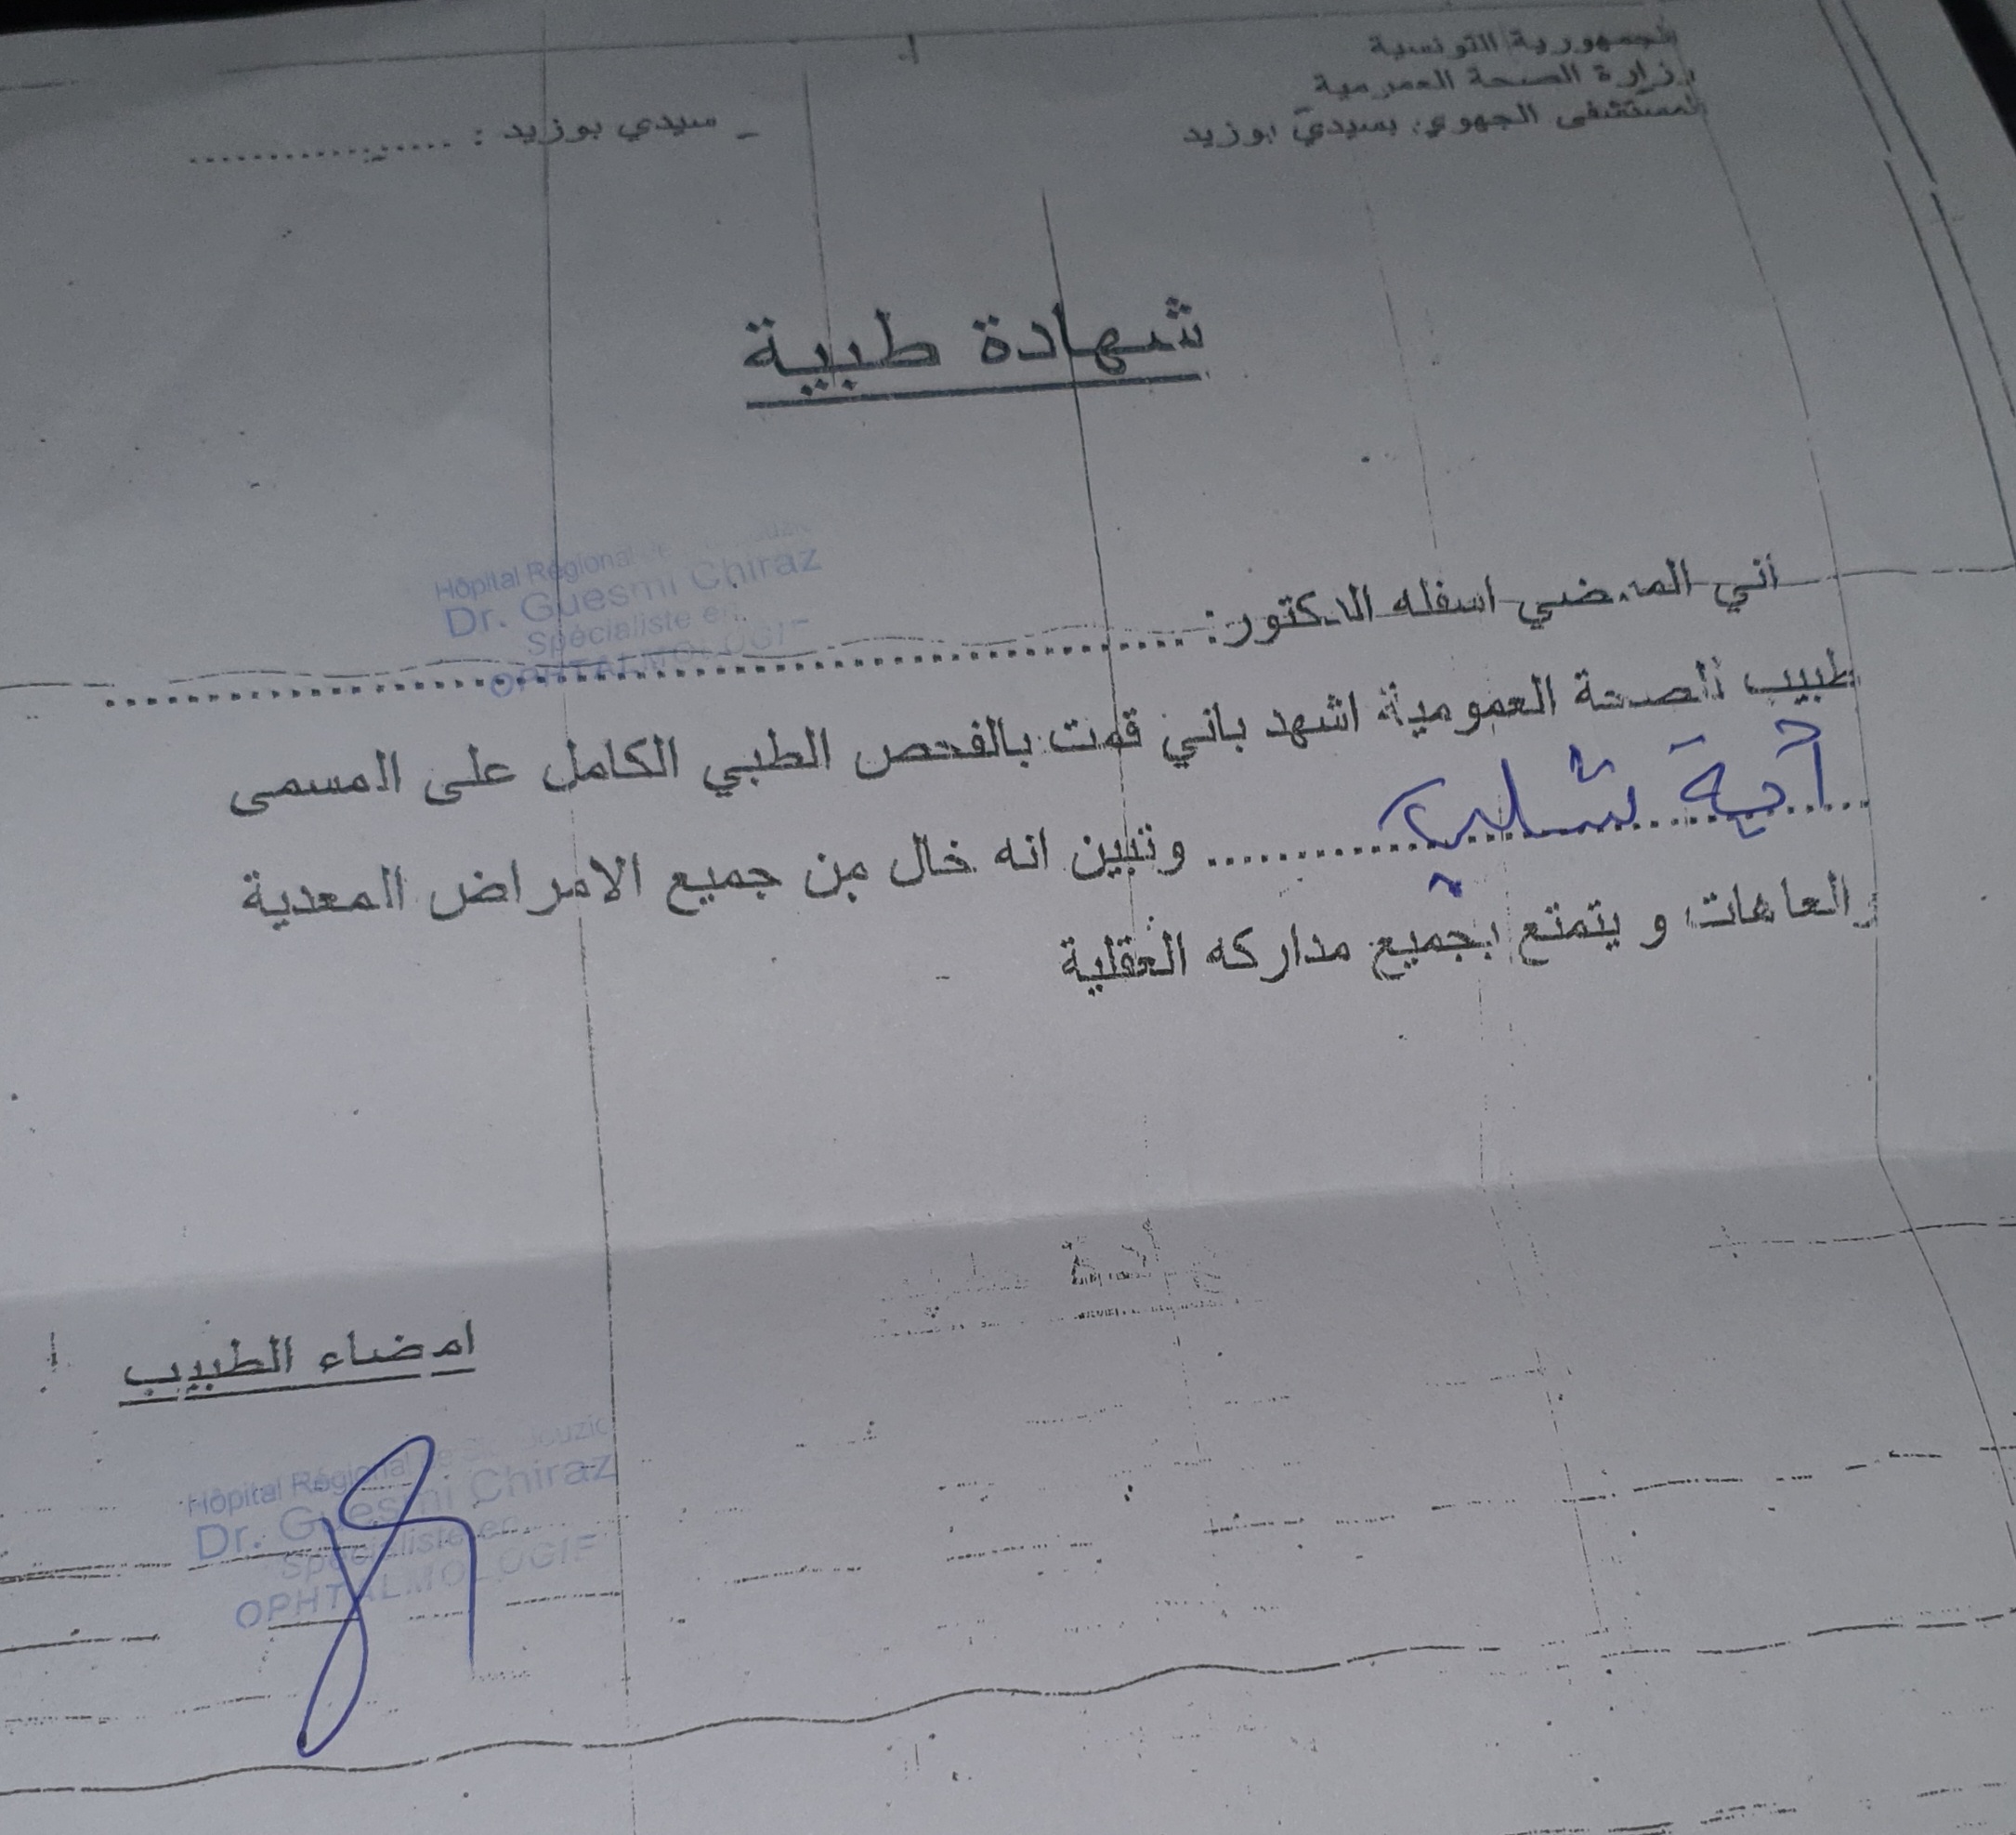 الجمهورية التونسية
وزارة الصحة العمومية
المستشفى الجهوي بسيدي بوزيد
- سيدي بوزيد : ..................
شهادة طبية
Hôpital Régional de
Dr. Guesmi Chiraz
Spécialiste en
OPHTALMOLOGIE
اني الممضي اسفله الدكتور: ..........................................................
طبيب الصحة العمومية اشهد باني قمت بالفحص الطبي الكامل على المسمى
آية ........................ وتبين انه خال من جميع الامراض المعدية
والعاهات و يتمتع بجميع مداركه العقلية
امضاء الطبيب
Hôpital Régional de
Dr. Guesmi Chiraz
Spécialiste en
OPHTALMOLOGIE